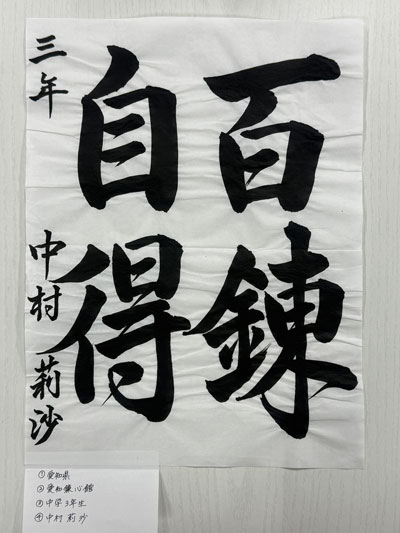 百錬
自得
三年 中村 莉沙
①愛知県
②愛知錬心館
③中学3年生
④中村 莉沙